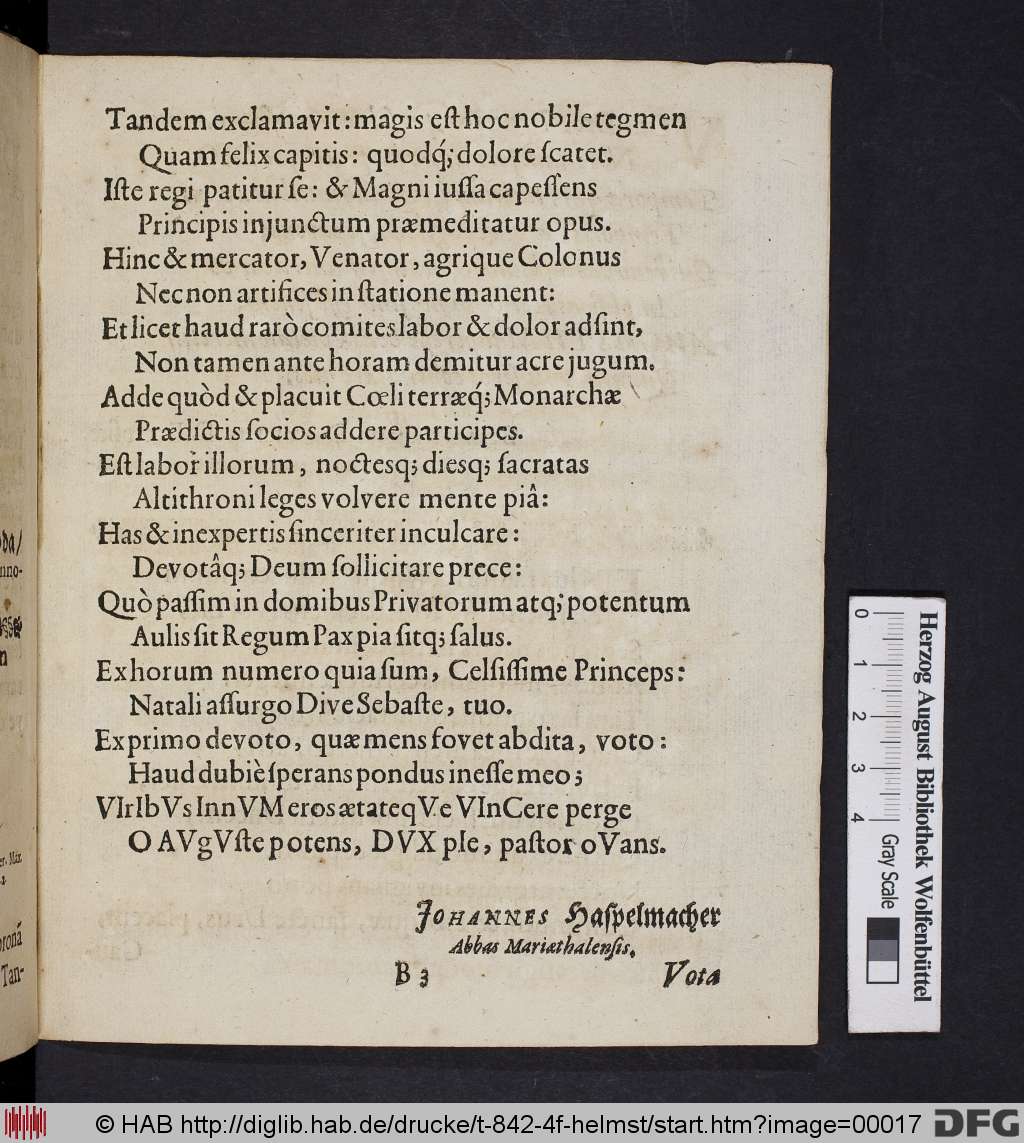 Tandem exclamavit: magis eſt hoc nobile tegmen
Quam felix capitis: quodq́; dolore ſcatet.
Iſte regi patitur ſe: & Magni iuſſa capeſſens
Principis injunctum præmeditatur opus.
Hinc & mercator, Venator, agrique Colonus
Nec non artifices in ſtatione manent:
Et licet haud rarò comites labor & dolor adſint,
Non tamen ante horam demitur acre jugum.
Adde quòd & placuit Cœli terræq́; Monarchæ
Prædictis ſocios addere participes.
Eſt labor illorum, noctesq; diesq; ſacratas
Altithroni leges volvere mente piâ:
Has & inexpertis ſinceriter inculcare:
Devotâq; Deum ſollicitare prece:
Quò paſſim in domibus Privatorum atq; potentum
Aulis ſit Regum Pax pia ſitq; ſalus.
Ex horum numero quia ſum, Celſiſſime Princeps:
Natali aſſurgo Dive Sebaſte, tuo.
Exprimo devoto, quæ mens fovet abdita, voto:
Haud dubiè ſperans pondus ineſſe meo;
VIrIbVs InnVMeros ætateqVe VInCere perge
O AVgVſte potens, DVX pIe, paſtor oVans.
JOHANNES Haſpelmacher
Abbas Mariæthalenſis.
B 3
Vota
oba/
nno-
n
er. Máx
oronâ
Tan-
0 1 2 3 4
Herzog August Bibliothek Wolfenbüttel
Gray Scale
© HAB http://diglib.hab.de/drucke/t-842-4f-helmst/start.htm?image=00017
DFG